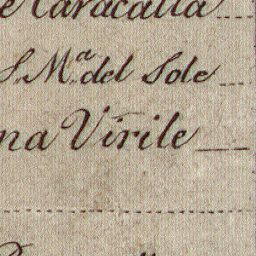 e Caracalla
S. M.ª del Sole
na Virile